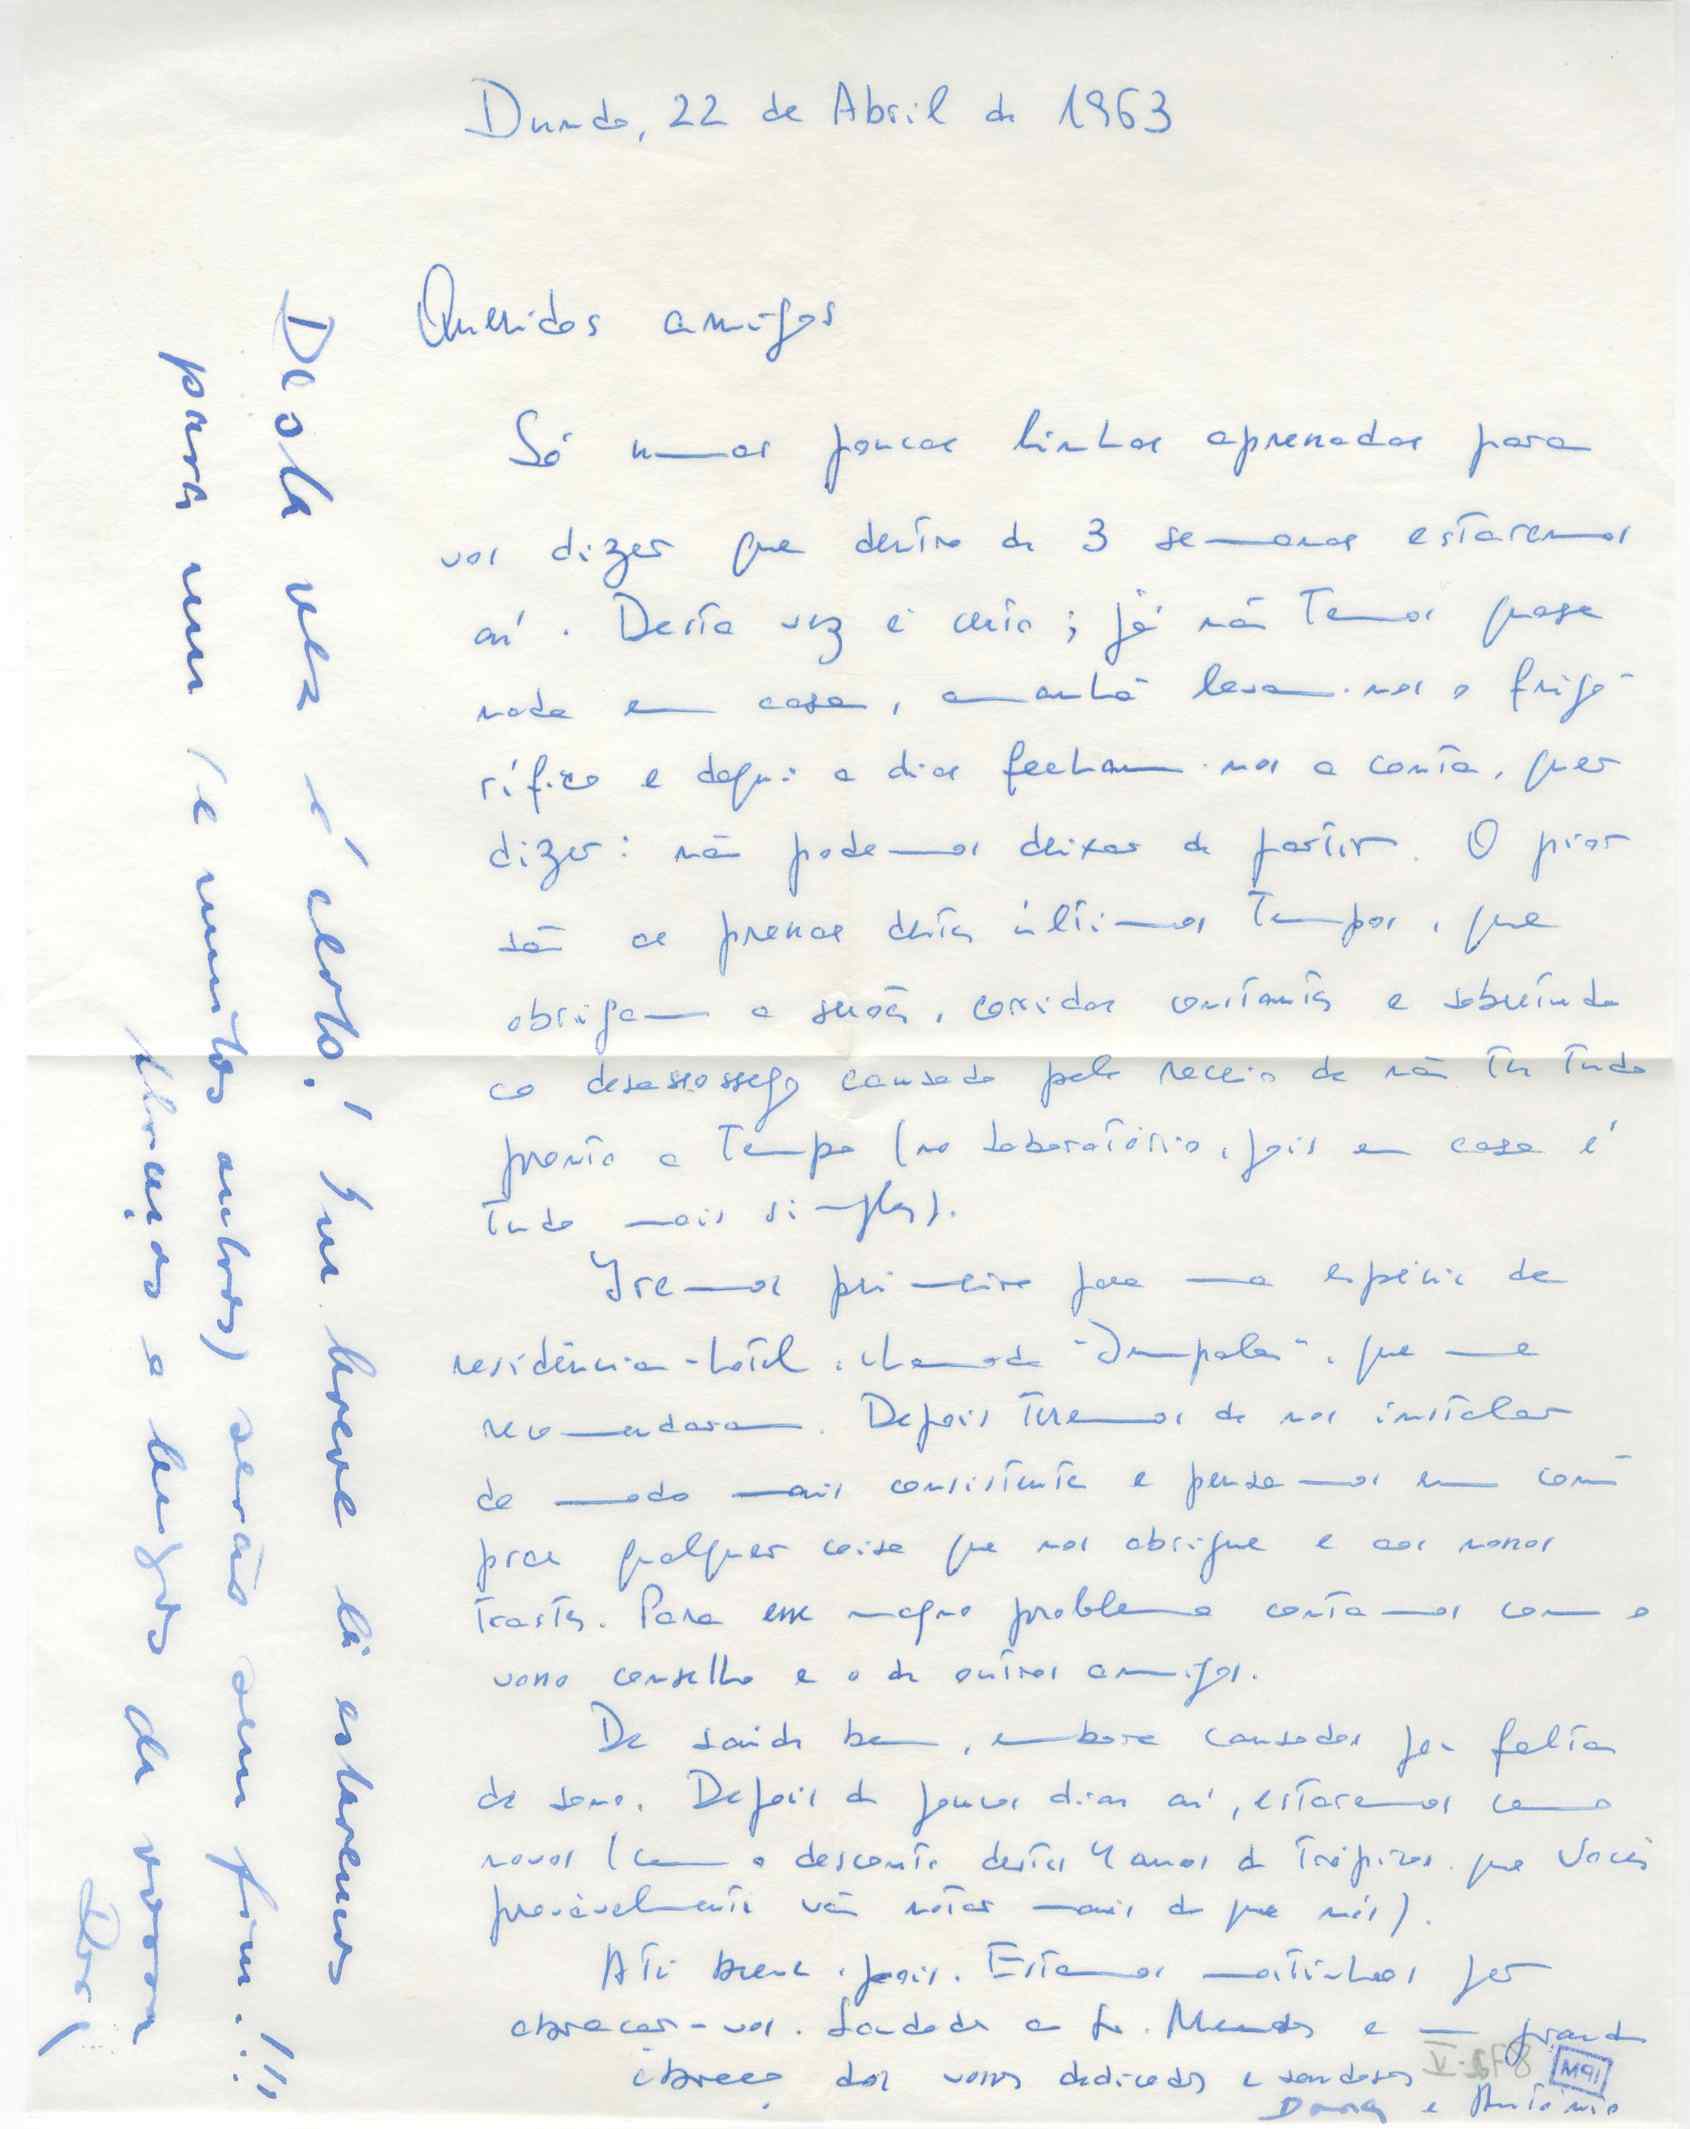 Dundo, 22 de Abril de 1963
Queridos amigos
Só umas poucas linhas apressadas para
vos dizer que dentro de 3 semanas estaremos
aí. Desta vez é certo; já não temos quase
nada em casa, amanhã levam-nos o frigo-
rífico e daqui a dias fecham-nos a conta, quer
dizer: não podemos deixar de partir. O pior
são as pressas destes últimos tempos, que
obrigam a serões, corridas constantes e sobretudo
ao desassossego causado pelo receio de não ter tudo
pronto a tempo (no laboratório, pois em casa é
tudo mais simples).
Iremos primeiro para uma espécie de
residência-hotel, chamada "Impala", que me
recomendaram. Depois teremos de nos instalar
de modo mais consistente e pensamos em com-
prar qualquer coisa que nos abrigue e aos nossos
trastes. Para esse magno problema contamos com o
vosso conselho e o de outros amigos.
De saúde bem, embora cansados por falta
de sono. Depois de poucos dias aí, estaremos como
novos (com o desconto destes 4 anos de trópicos que Vocês
provavelmente vão notar mais do que nós).
Até breve, pois. Estamos mortinhos por
abraçar-vos. Saudade a Sr. Mendes e um grande
abraço dos vossos dedicados e saudosos
Dora e António
Desta vez é certo! Em breve lá estaremos
para um (e muitos outros) serão sem fim!!!
Abraços e beijos da vossa
Dora
V-5F8
M91